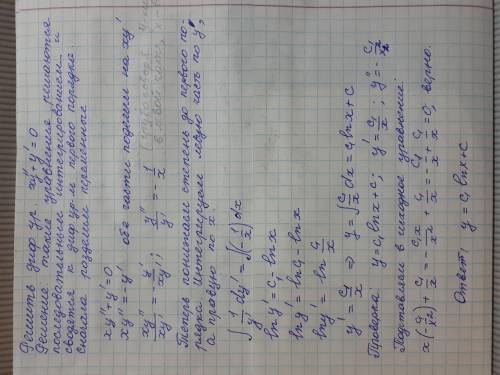 Решить диф. ур. xy''+y'=0
Решение такие уравнения решаются
последовательным интегрированием и
сводятся к диф. ур-ю первого порядка
сначала разделим переменные
xy''+y'=0
xy''=-y' обе части поделим на xy'
xy''/xy' = -y'/xy'; y''/y' = -1/x
Теперь понижаем степень до первого по-
рядка. Интегрируем левую часть по y',
а правую по x.
∫ 1/y' dy' = ∫(-1/x) dx
ln y' = C₁ - ln x
ln y' = ln C₁ - ln x
ln y' = ln C₁/x
y' = C₁/x ⇒ y = ∫ C₁/x dx = C₁ ln x + C
Проверка: y = C₁ ln x + C; y' = C₁/x; y'' = -C₁/x²
Подставляем в исходное уравнение:
x(-C₁/x²) + C₁/x = -C₁x/x² + C₁/x = -C₁/x + C₁/x = 0; верно.
Ответ: y = C₁ ln x + C